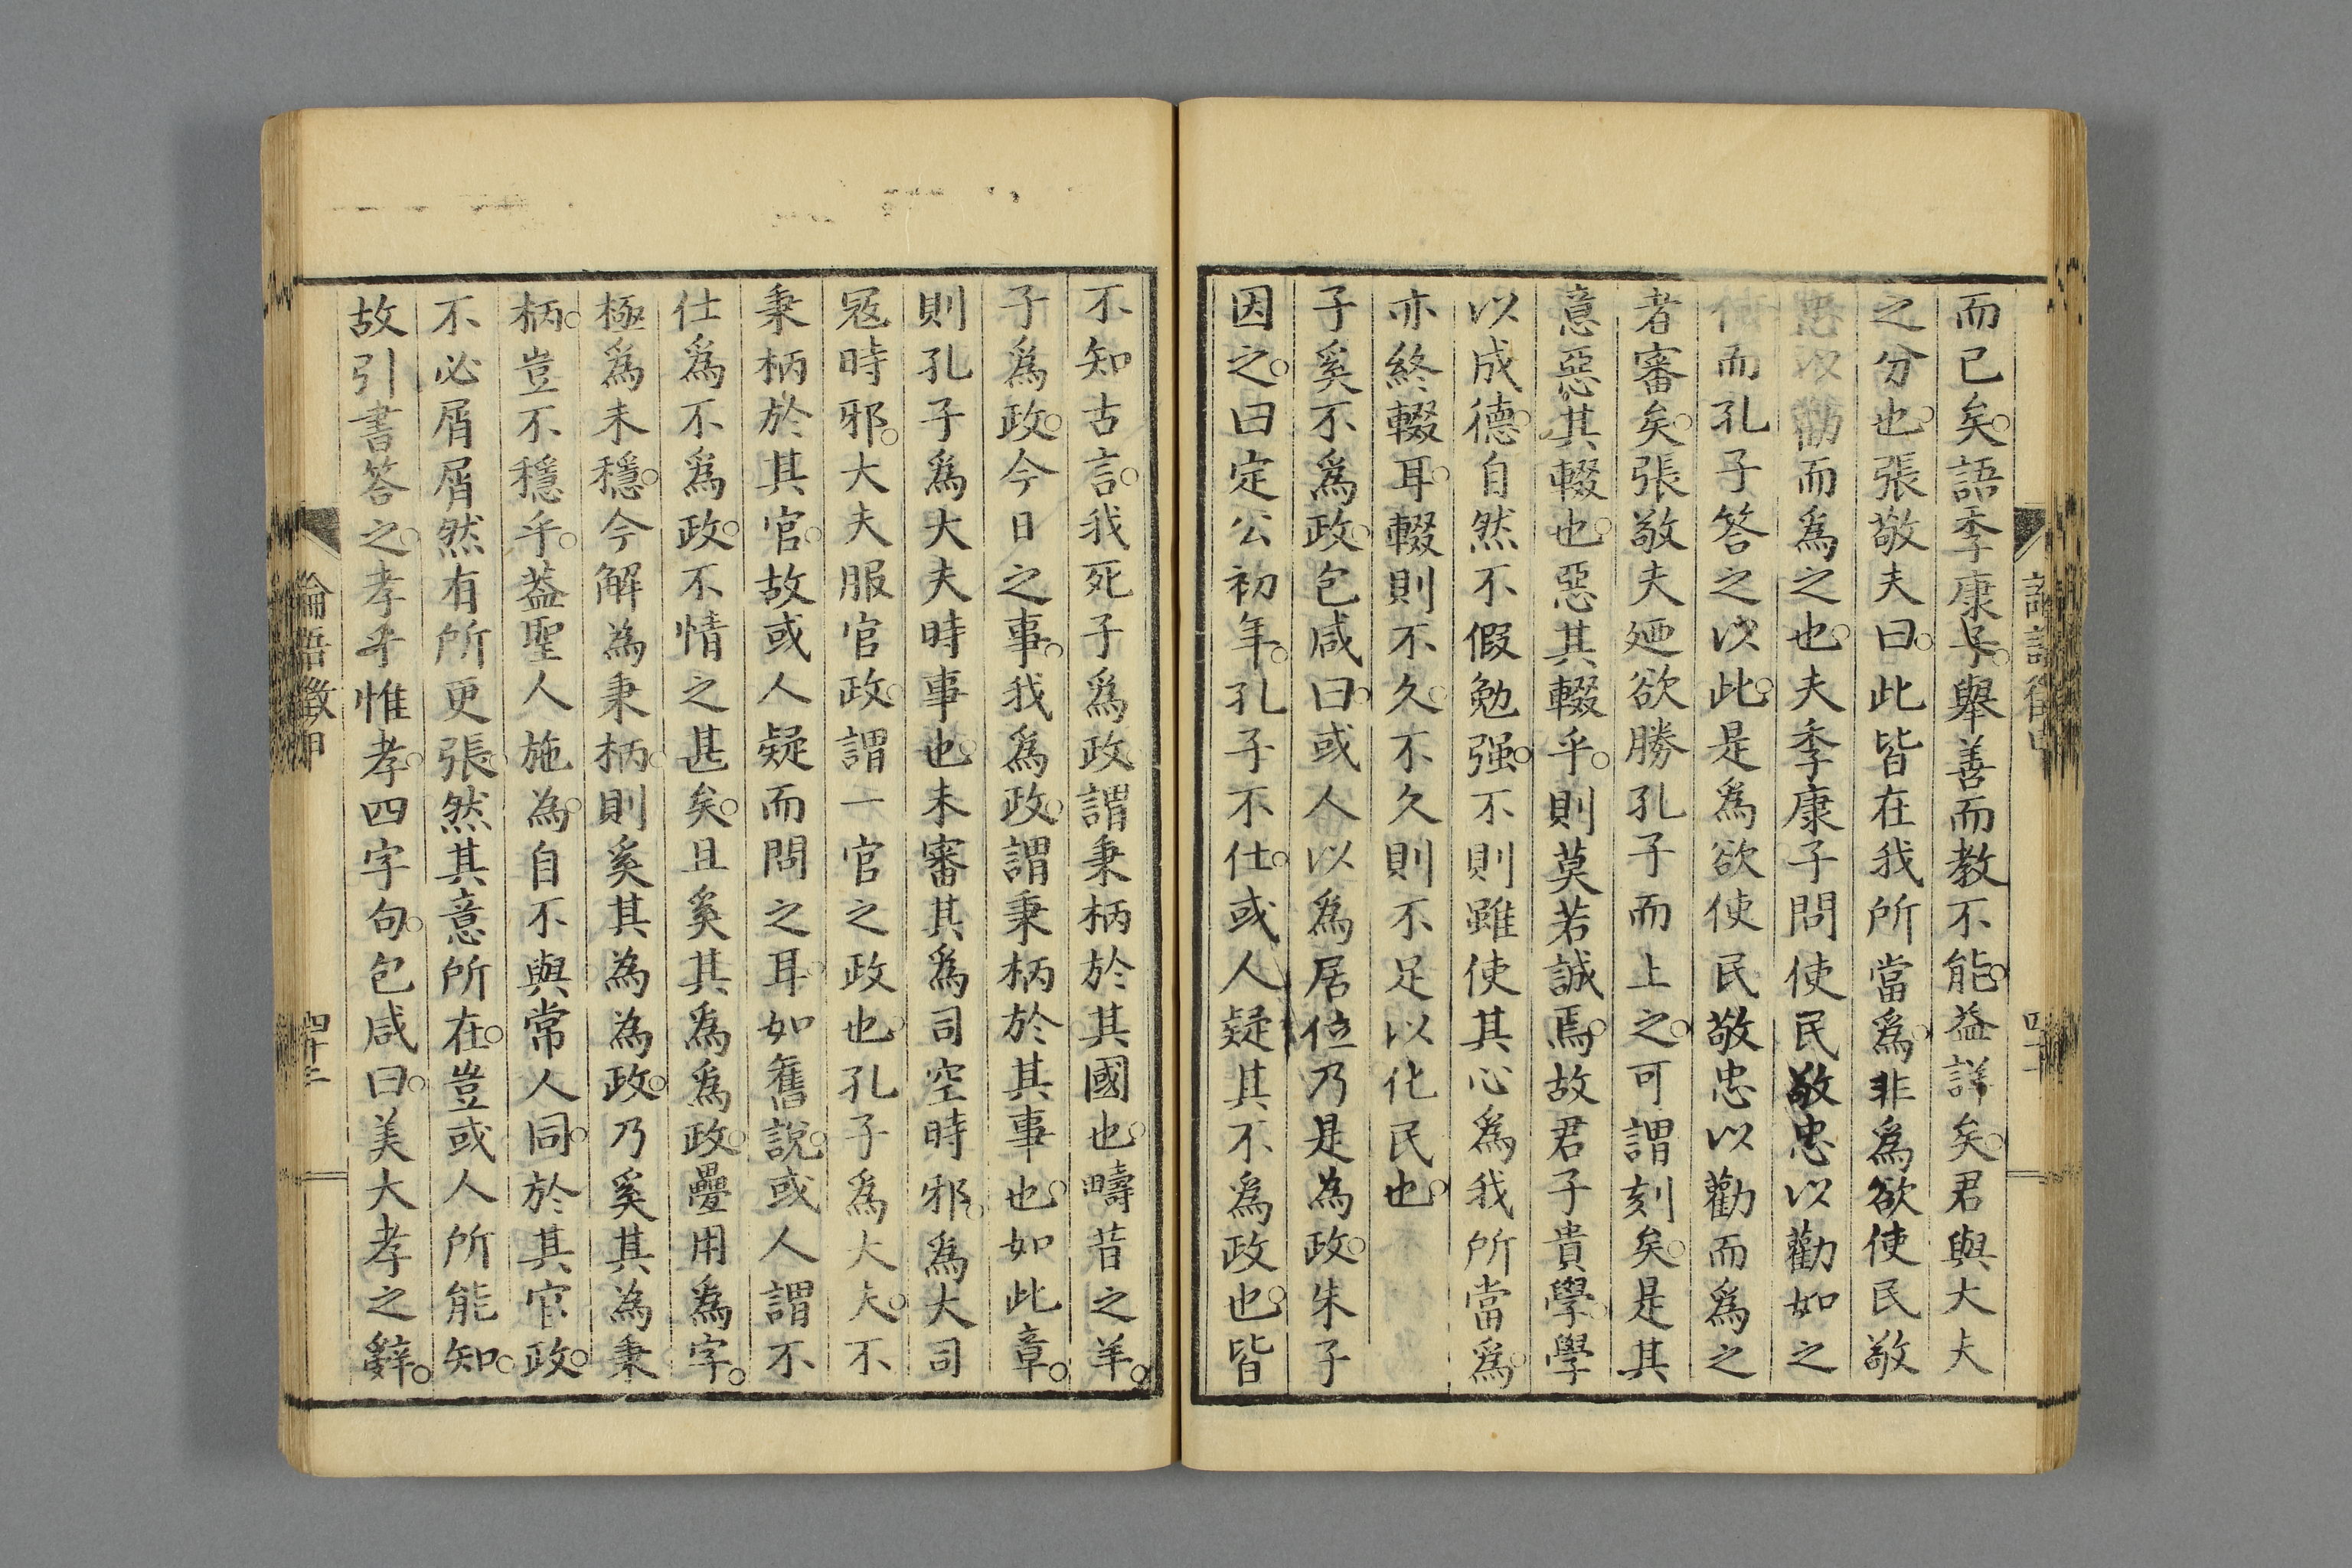 而已矣。語季康子。舉善而教不能。益詳矣。君與大夫
之分也。張敬夫曰。此皆在我所當爲。非爲欲使民敬
忠以勸而爲之也。夫季康子問使民敬忠以勸如之
何而孔子答之以此。是爲欲使民敬忠以勸而爲之
者審矣。張敬夫廼欲勝孔子而上之。可謂刻矣。是其
意惡其輟也。惡其輟乎。則莫若誠焉。故君子貴學。學
以成德。自然不假勉强。不則雖使其心爲我所當爲。
亦終輟耳。輟則不久。不久則不足以化民也。
子奚不爲政。包咸曰。或人以爲居位乃是為政。朱子
因之。曰定公初年。孔子不仕。或人疑其不爲政也。皆
不知古言。我死子爲政。謂秉柄於其國也。疇昔之羊。
子爲政。今日之事。我爲政。謂秉柄於其事也。如此章。
則孔子爲大夫時事也。未審其爲司空時邪。爲大司
寇時邪。大夫服官政。謂一官之政也。孔子爲大夫。不
秉柄於其官。故或人疑而問之耳。如舊說。或人謂不
仕爲不爲政。不情之甚矣。且奚其爲爲政。疊用爲字。
極爲未穩。今解為秉柄。則奚其為為政。乃奚其為秉
柄。豈不穩乎。蓋聖人施為。自不與常人同。於其官政。
不必屑屑然有所更張。然其意所在。豈或人所能知。
故引書答之。孝乎惟孝。四字句。包咸曰。美大孝之辭。
論語徵甲
四十二